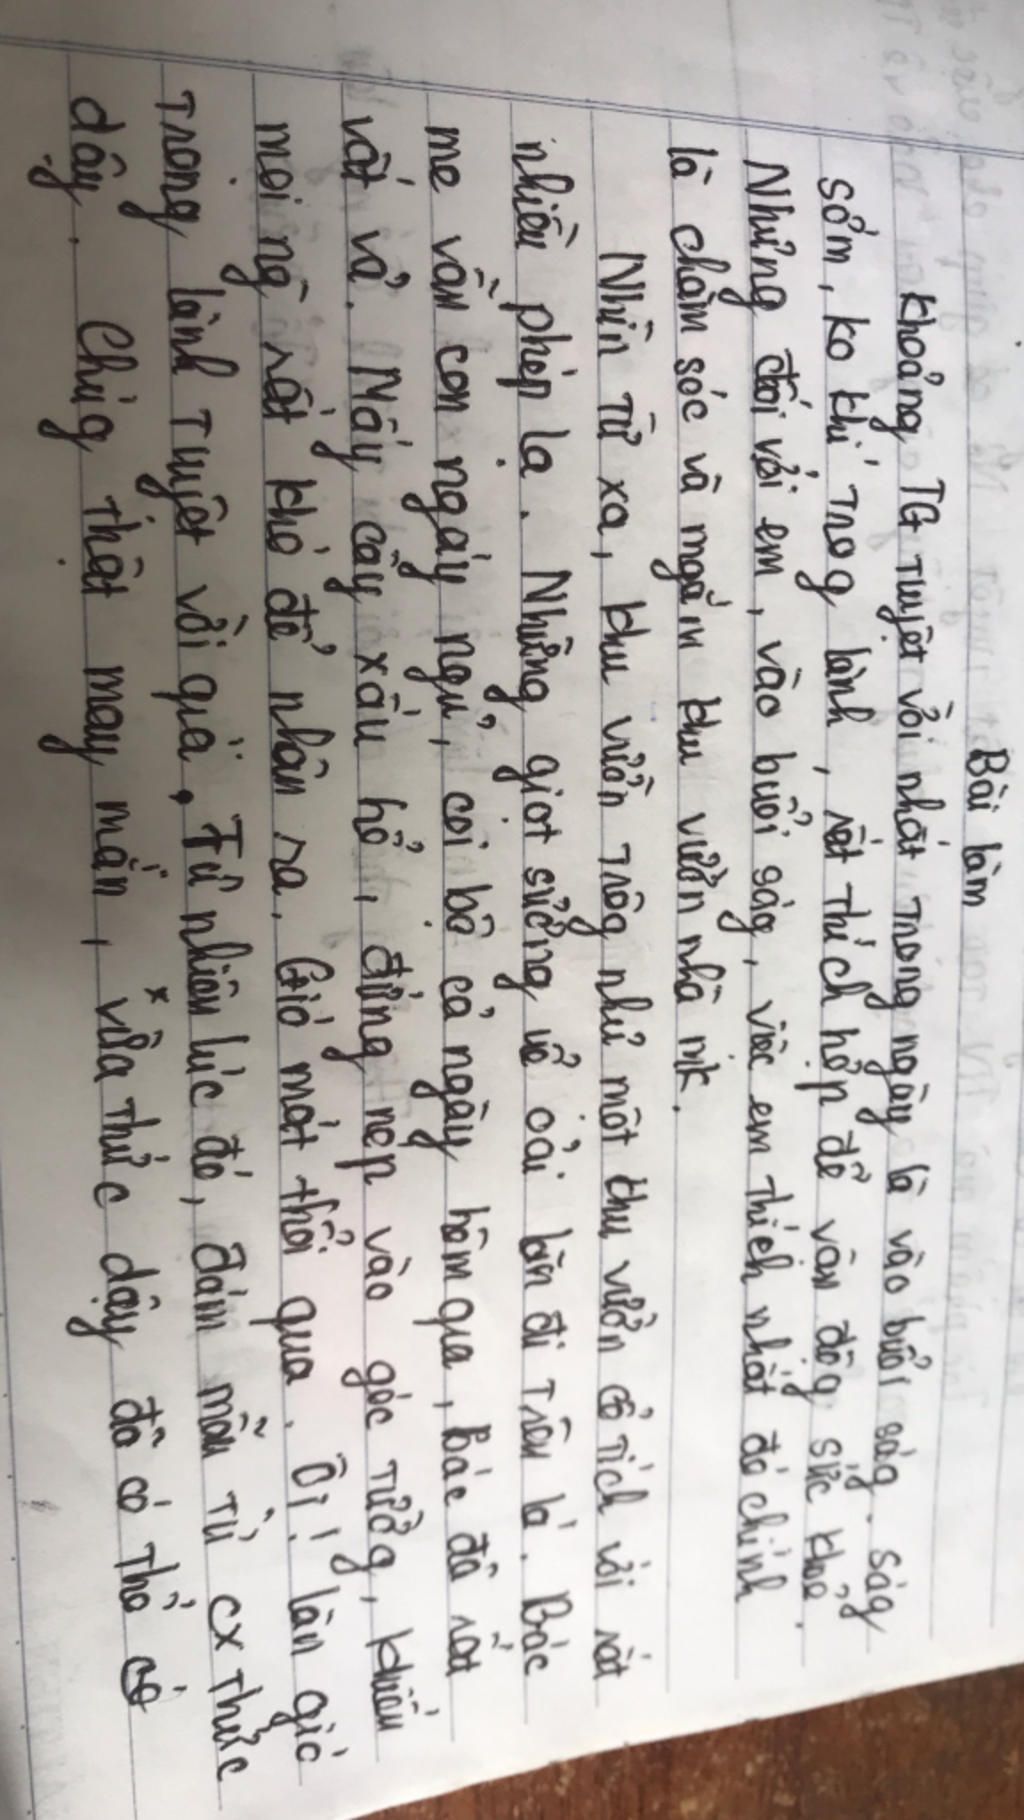 Bài làm
Khoảng TG tuyệt vời nhất trong ngày là vào buổi ság. Ság
sớm, ko khí trog lành, rất thích hợp để vận độg sức khỏe.
Nhưng đối với em, vào buổi ság, việc em thích nhất đó chính
là chăm sóc và ngắm khu vườn nhà mk.
Nhìn từ xa, khu vườn trôg như một khu vườn cổ tích với rất
nhiều phép lạ. Những giọt sương vẫ còn lăn đi trên lá. Bác
me vẫn còn ngáy ngủ, coi bộ cả ngày hôm qua, bác đã rất
vất vả. Mấy cây xấu hổ, đứng nép vào góc tườg, khiến
mọi ng rất khó để nhận ra. Gió mát thổi qua. Ôi! làn gió
trong lành tuyệt vời quá. Từ nhiên lúc đó, đám mẫu tử cx thức
dậy. Chúg thật may mắn, vừa thức dậy đã có thể có